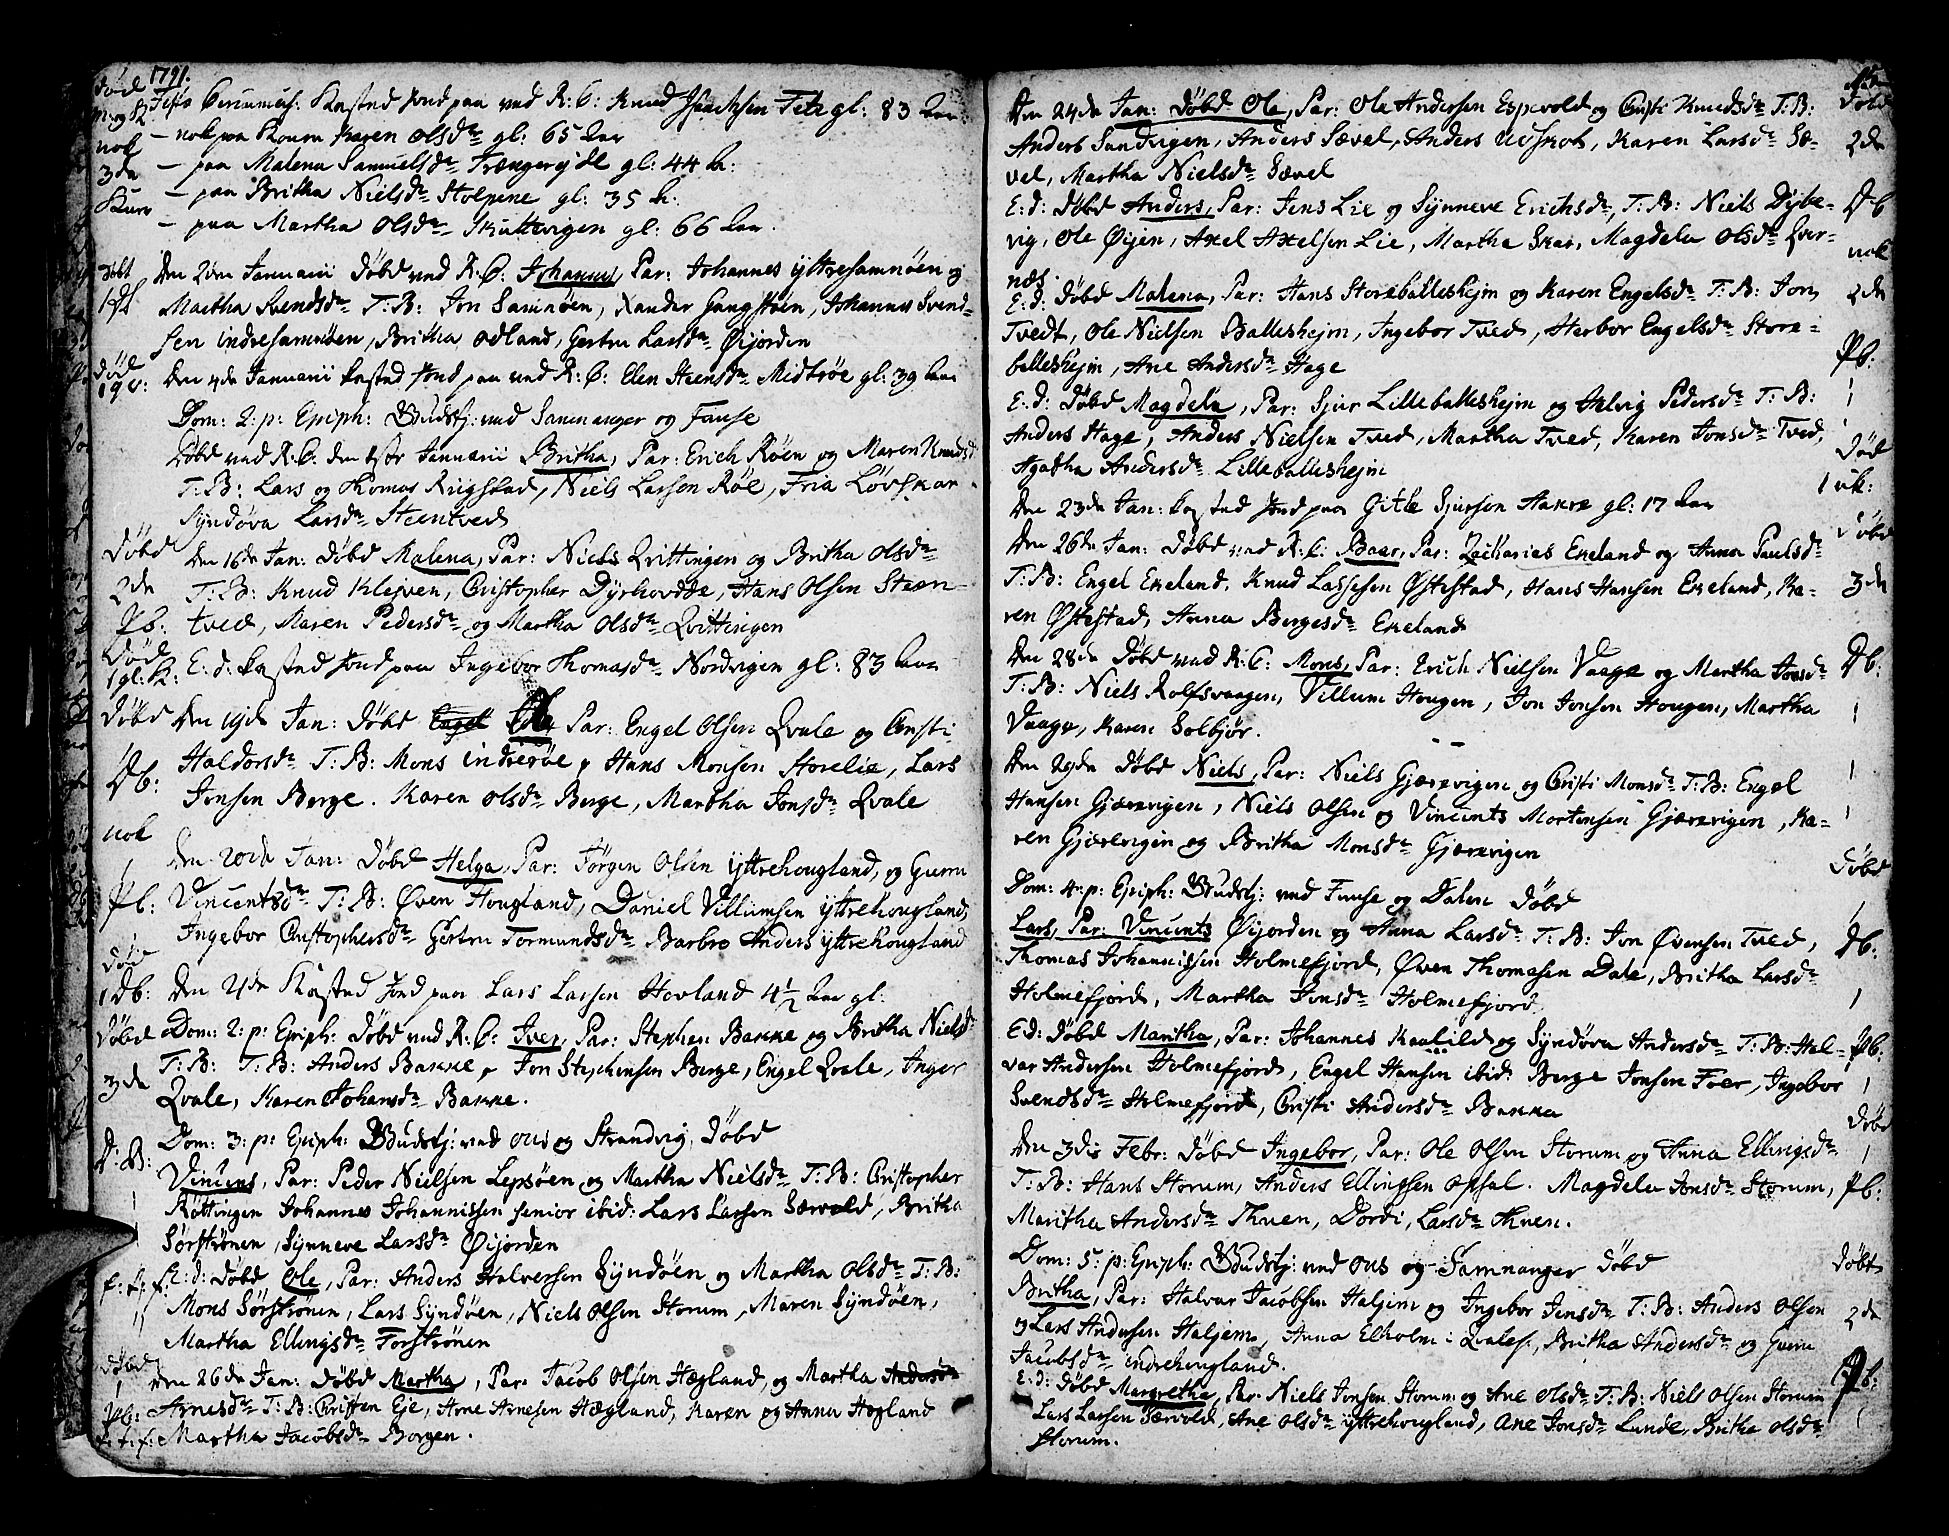 1791.
Festo Circumcis: Kasted Jord paa ved K: C: Knud Isachsen Tetz gl: 83 Aar
– nok paa Karen Olsd: gl: 65 Aar
– paa Malena Samuelsd: Trængereide gl: 44 Ar:
– paa Britha Nielsd: Holpene gl: 35 Ar:
– paa Martha Olsd: Skuttevigen gl: 66 Aar.
Den 2den Januarii Døbd ved K: C: Johannes, Par: Johannes yttresamnøen og
Martha Svendsd: T: B: Jon Samnøen, Xander Gangstøen, Johannes Svend-
sen indresamnøen, Britha Odland, Gertru Larsd: Øijorden
Den 4de Januarii kasted Jord paa ved K: C: Elen Steensd: Midtrøe gl: 39 Aar
Dom: 2: p: Epiph: Gudstj: ved Samnanger og Fuuse
Døbd ved K: C: den Januarii Britha, Par: Erich Røen og Maren Knudsd:
T: B: Lars og Thomas Rugstad, Niels Larsen Røe, Fria Løvskar
Syndøva Larsd: Steentved
Den 16de Jan: Døbd Malena, Par: Niels Qvittingen og Britha Olsd:
T: B: Knud Klejven, Cristopher Dyrhovde, Hans Olsen Steen-
tved, Maren Pedersd: og Martha Olsd: Qvittingen
E: d: kasted Jord paa Ingebor Thomasd: Nordvigen gl: 83 Aar
Den 19de Jan: Døbd Engel Ole, Par: Engel Olsen Qvale og Cristi
Haldorsd: T: B: Mons indrerøe, Hans Monsen Storelie, Lars
Jonsen Berge. Karen Olsd: Berge, Martha Jonsd: Qvale
Den 20de Jan: Døbd Helga, Par: Jørgen Olsen yttrehougland, og Guru
Vincentsd: T: B: Øven Hougland, Daniel Villumsen yttrehougland,
Ingebor Cristophersd: Gertru Tormundsd: Barbro Anders yttrehougland
Den 21de Kasted Jord paa Lars Larsen Hovland 4½ Aar gl:
Dom: 2: p: Epiph: Døbd ved K: C: Iver, Par: Stephen Bakke og Britha Nielsd:
T: B: T: B: Anders Bakke, Jon Stephensen Berge, Engel Qvale, Inger
Qvale, Karen Johansd: Bakke.
Dom: 3: p: Epiph: Gudstj: ved Ous og Strandvig, Døbd
Vincens, Par: Peder Nielsen Lepsøen og Martha Nielsd: T: B: Cristopher
Røttingen Johannes Johannissen senior ibid: Lars Larsen Særvold, Britha
Sørstrønen, Synneve Larsd: Øijorden
E: d: Døbd Ole, Par: Anders Halversen Syndøen og Martha Olsd: T: B:
Mons Sørstrønen, Lars Syndøen, Niels Olsen Storum, Maren Syndøen,
Martha Ellingsd: Forstrønen
Den 26de Jan: Døbd Martha, Par: Jacob Olsen Hægland, og Martha Andersd:
Arnesd: T: B: Cristen Eje, Arne Arnesen Hægland, Karen og Anna Hægland
Martha Jacobsd: Borgen.
Død
nok
3de
Døbt
Død
Døbd
2de
Pb:
Død
Døbd
Db:
nok
Pb:
Død
1 Db:
Døbd
3de
D: B:
Døbd
Pb:
Den 24de Jan: Døbd Ole, Par: Ole Andersen Espevold og Cristi Knudsd: T: B:
Anders Sandvigen, Anders Sævel, Anders Udskot, Karen Larsd: Sæ-
vel, Martha Nielsd: Sævel
E: d: Døbd Anders, Par: Jens Lie og Synneve Erichsd: T: B: Niels Dybe-
vig, Ole Øijen, Axel Axelsen Lie, Martha Skar, Magdela Olsd: Qver-
næs
E: d: Døbd Malena, Par: Hans Storeballeshejm og Karen Engelsd: T: B: Jon
Tvedt, Ole Nielsen Balleshejm, Ingebor Tved, Herbor Engelsd: Store-
balleshejm, Ane Andersd: Hage
E: d: Døbd Magdela, Par: Sjur Lilleballeshejm og Helvig Pedersd: T: B:
Anders Hage, Anders Nielsen Tved, Martha Tved, Karen Jonsd: Tved,
Agatha Andersd: Lilleballeshejm
Den 23de Jan: kasted Jord paa Gitle Sjursen Aakre gl: 17 Aar
Den 26de Jan: Døbd ved K: C: Baar, Par: Zacharias Ekeland og Anna Paulsd:
T: B: Engel Ekeland, Knud Lassesen Østestad, Hans Hansen Ekeland, Ka-
ren Østestad, Anna Bergesd: Ekeland
Den 28de Døbd ved K: C: Mons, Par: Erich Nielsen Vaage og Martha Jonsd:
T: B: Niels Rolfsvaagen, Villum Hougen, Jon Jonsen Hougen, Martha
Vaage, Karen Solbjør.
Den 29de Døbd Niels, Par: Niels Gjærevigen og Cristi Monsd: T: B: Engel
Hansen Gjærevigen, Niels Olsen og Vincents Mortensen Gjærevigen, Ka-
ren Gjærevigen og Britha Monsd: Gjærevigen
Dom: 4: p: Epiph: Gudstj: ved Fuuse og Dalen Døbd
Lars, Par: Vincents Øijorden og Anna Larsd: T: B: Jon Øvensen Tved,
Thomas Johannissen Holmefjord, Øven Thomasen Dale, Britha Larsd:
Holmefjord, Martha Jonsd: Holmefjord.
E: d: Døbd Maritha, Par: Johannes Kaalild og Syndøva Andersd: T: B: Hal-
var Andersen Holmefjord, Engel Hansen ibid: Berge Jonsen Foer, Ingebor
Svendsd: Holmefjord, Cristi Andersd: Bakka
Den 3die Febr: Døbd Ingebor, Par: Ole Olsen Storum og Anna Ellingsd:
T: B: Hans Storum, Anders Ellingsen Opsal. Magdela Jonsd: Storum,
Maritha Andersd: Thuen, Dordi, Larsd: Thuen.
Dom: 5: p: Epiph: Gudstj: ved Ous og Samnanger Døbd
Britha, Par: Halvar Jacobsen Haljem og Ingebor Jensd: T: B: Anders Olsen
og Lars Andersen Haljem, Anna Elholm i Qvales, Britha Andersd: og Guru
Jacobsd: indrehougland.
E: d: Døbd Margretha, Par: Niels Jonsen Storum og Ane Olsd: T: B: Niels Olsen Storum
Lars Larsen Særvold, Ane Olsd: yttrehougland, Ane Jonsd: Lunde, Britha Olsd:
Storum.
Døbd
2de
Db
nok
2de
Pb:
Død
Døbd
3de
Db:
Døbd
Db:
Pb:
Døbd
Pb:
Døbt
2de
Pb: